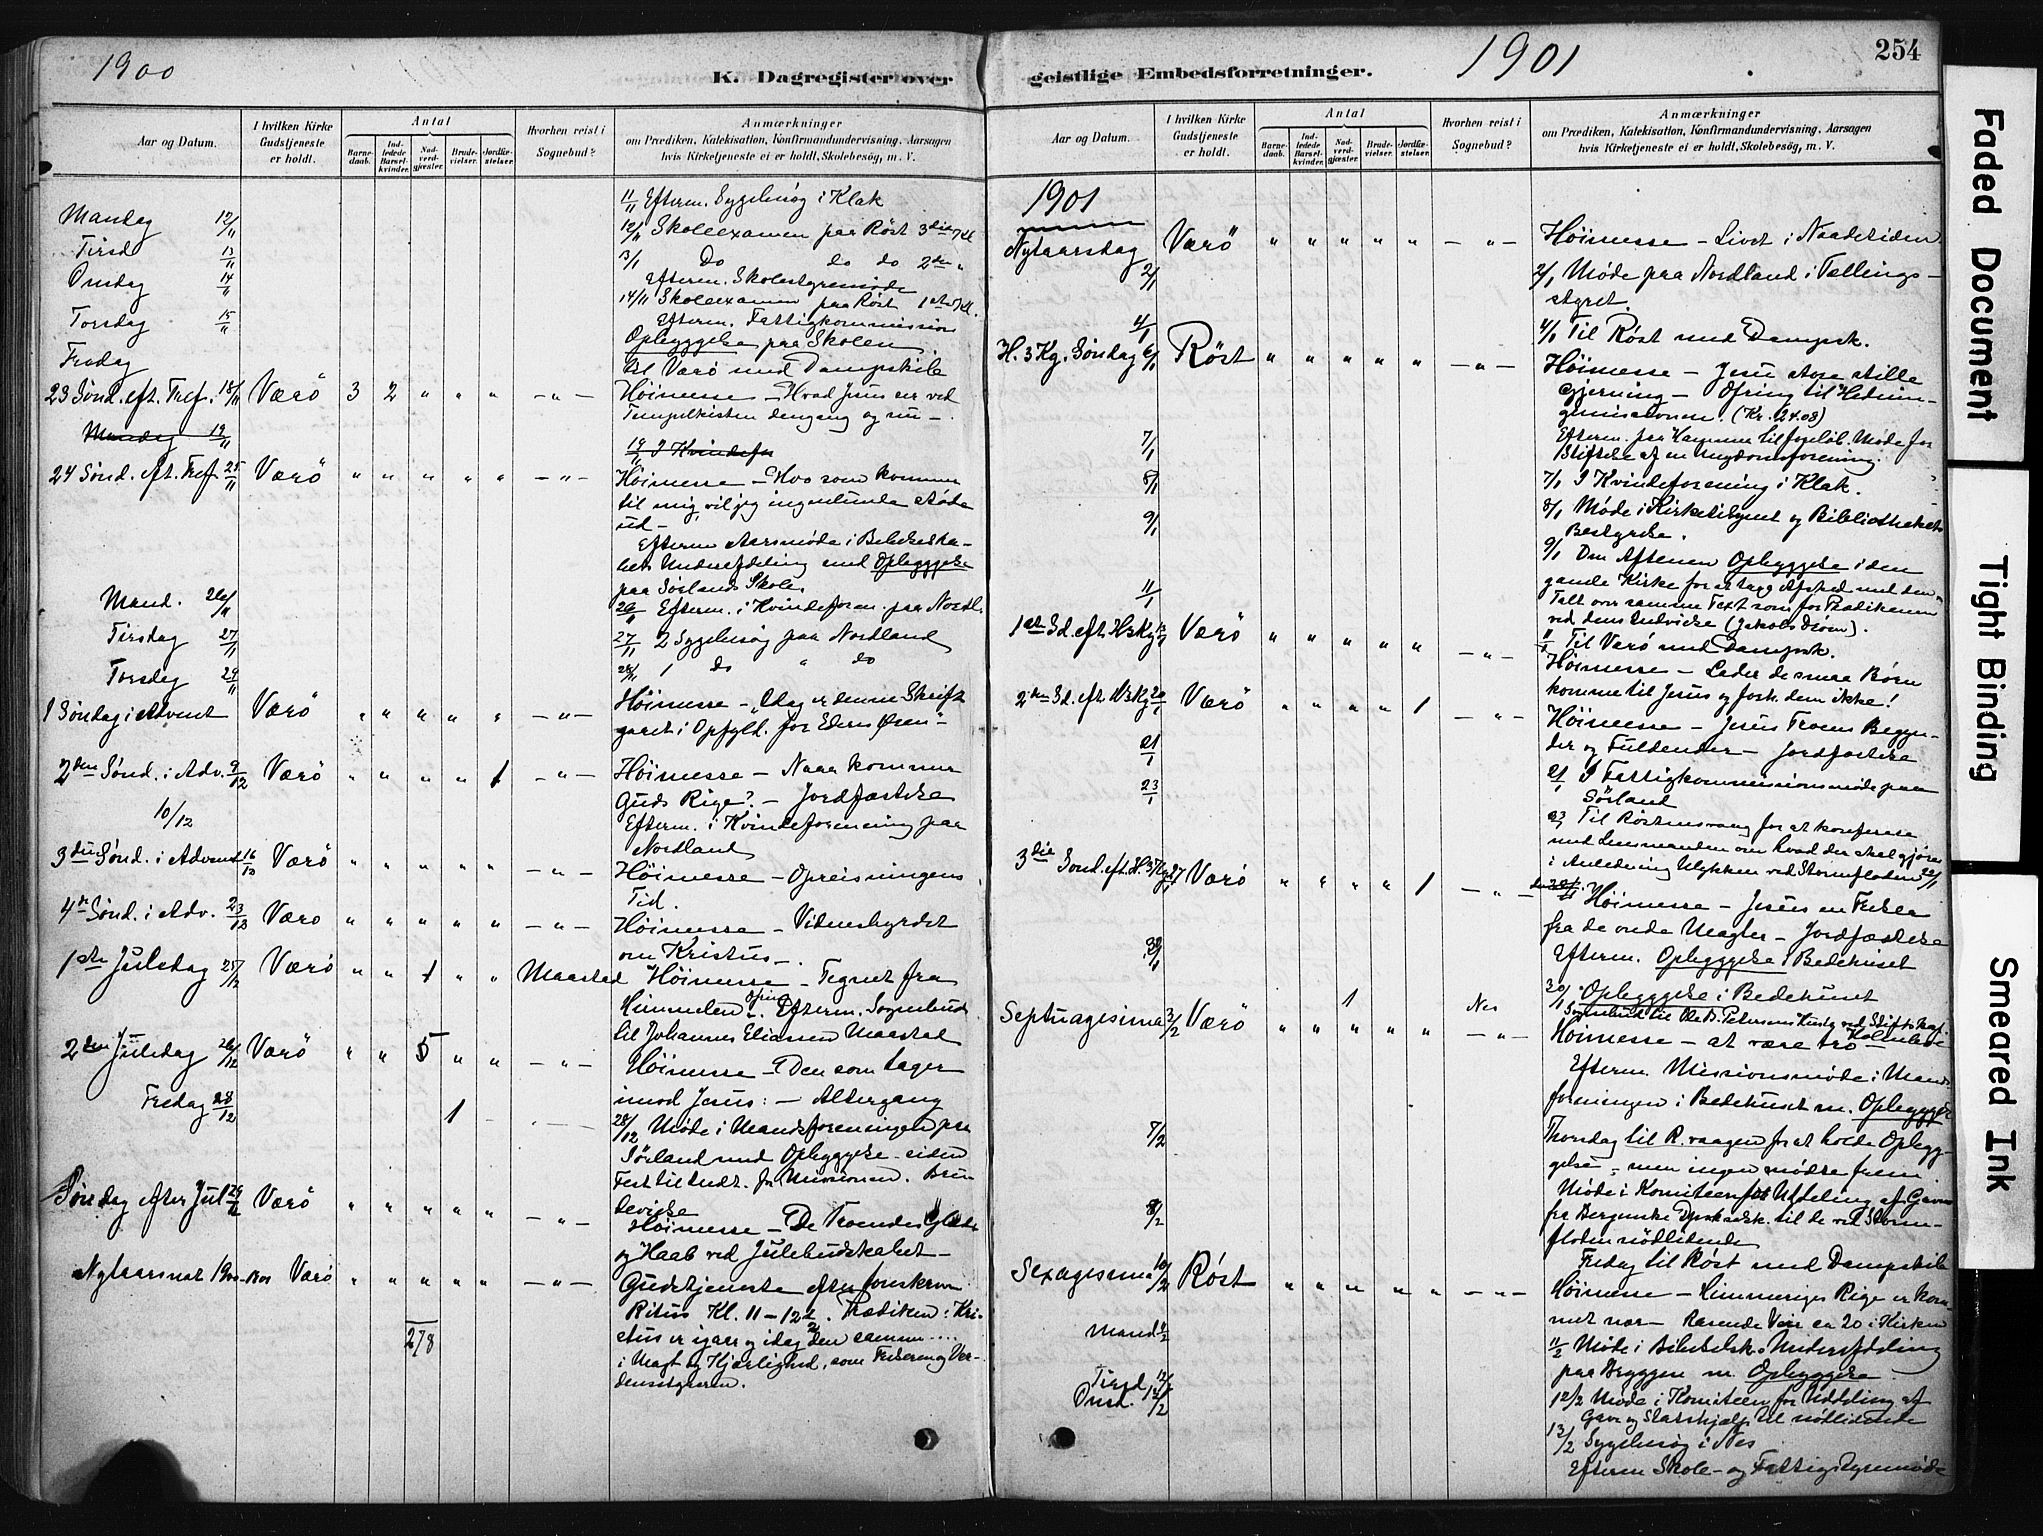 1900
K. Dagregister over
Aar og Datum.
I hvilken Kirke Gudstjeneste er holdt.
Antal
Barnedaab.
Indledede Barselkvinder.
Nadverdgjæster.
Brudevielser.
Jordfæstelser.
Hvorhen reist i Sognebud?
Anmærkninger
om Prædiken, Katekisation, Konfirmandundervisning, Aarsagen
hvis Kirketjeneste ei er holdt, Skolebesøg, m. V.
11/11 Efterm. Sygebesøg i Klak
Mandag 12/11
12/11 Skoleexamen paa Røst 3die Kl
Tirsd 13/11
13/1 Do do do 2den "
Onsdag 14/11
Efterm. Skolestyremøde
14/11 Skoleexamen paa Røst 1ste Kl.
Torsdag 15/11
Efterm. Fattigkommission
Opbyggelse paa Skolen
Fredag
til Værø med Dampskib
23 Sønd. eft. Tref. 18/11 Værø 3 2 " " " - " - Høimesse - Hvad Jesus ser ved
Tempelkisten dengang og nu -
Mandag 19/11
19/11 I Kvindefor
24 Sønd. eft. Tref. 25/11 Værø " " " " " - " - Høimesse - Hvo som kommer
til mig, vil jeg ingenlunde støde
ud -
Efterm Aarsmøde i Bibelselska-
bets Underafdeling med Opbyggelse
paa Sørlands Skole
Mand. 26/11
26/11 Efterm. i Kvindeforen. paa Nordl.
Tirsdag 27/11
27/11 2 Sygebesøg paa Nordland
Torsdag 29/11
29/11 1 do " do
1 Søndag i Advent Værø " " " " " - " - Høimesse - "Idag er denne Skrift
gaaet i Opfyld. for Eders Øren" -
2den Sønd. i Adv. 9/12 Værø " " " " 1 - " - Høimesse - Naar kommer
Guds Rige? - Jordfæstelse
10/12
Efterm. i Kvindeforening paa
Nordland
3die Sønd. i Advent 16/12 Værø " " " " " - " - Høimesse - Opreisningens
Tid.
4de Sønd. i Adv. 23/12 Værø " " " " " - " - Høimesse - Vidnesbyrdet
om Kristus -.
1ste Juledag 25/12 Værø " " 1 " " Maastad Høimesse - Tegnet fra
Himmelen -. Ofring Efterm. Sognebud
til Johannes Eliassen Maastad
2den Juledag 26/12 Værø " " 5 " " - " - Høimesse - Den som tager
imod Jesus: - Altergang
Fredag 28/12 1
28/12 Møde i Mandsforeningen paa
Sørland med Opbyggelse - siden
Fest til Indt. for Missionen. Bru-
devielse
Søndag efter Jul 30/12 Værø " " " " " - " - Høimesse - De Troendes Glæde
og Haab ved Julebudskabet -
Nytaarsnat 1900-1901 Værø " " " " " - " - Gudstjeneste efter foreskreven
Ritus Kl. 11 - 12 1/2. Prædiken: Kri-
278
stus er igaar og idag den samme ....
i Magt og Kjærlighed, som Frelser og Ver-
densstyrer.
geistlige Embedsforretninger.
1901
254
Aar og Datum.
I hvilken Kirke Gudstjeneste er holdt.
Antal
Barnedaab.
Indledede Barselkvinder.
Nadverdgjæster.
Brudevielser.
Jordfæstelser.
Hvorhen reist i Sognebud?
Anmærkninger
om Prædiken, Katekisation, Konfirmandundervisning, Aarsagen
hvis Kirketjeneste ei er holdt, Skolebesøg, m. V.
1901
Nytaarsdag Værö " " " " " - " - Höimesse - Livet i Naadetiden
2/1
2/1 Møde paa Nordland i Tællings-
styret.
4/1
4/1 Til Røst med Dampsk.
H. 3 Kg. Søndag 6/1 Röst " " " " " - " - Höimesse - Jesu store stille
Gjerning - Ofring til Hednin-
gemissionen. (Kr. 24.08)
Efterm. paa Hammer til foreløb. Møde for
Stiftelse af en Ungdomsforening.
7/1
7/1 I Kvindeforening i Klak.
8/1
8/1 Møde i Kirketilsynet og Bibliothekets
Bestyrelse.
9/1
9/1 Om Aftenen Opbyggelse i den
gamle Kirke for at tage Afsked med den -
Talt over samme Text som for Prædikenen
ved dens Indvielse (Jakobs Drøm).
11/1
11/1 Til Værö med Dampsk.
1ste Sd. eft. H3Kg 13/1 Værö " " " " " - " - Höimesse - Lader de smaa Børn
komme til Jesus og forh. dem ikke!
2den Sd. eft. H3Kg 20/1 Værö " " " " 1 - " - Höimesse - Jesus Troens Begyn-
der og Fuldender - Jordfæstelse
21/1
21/1 I Fattigkommissionsmøde paa
Sörland
23/1
23 Til Røstnesvaag for at konferere
med Lensmanden om hvad der skal gjøres
i Anledning Ulykken ved Stormfloden 22/1
3die Sond. eft. H.3Kg. 27 Værö " " " " 1 - " - Höimesse - Jesus en Frelser
fra de onde Magter - Jordfæstelse
Efterm. Opbyggelse i Bedehuset
30/1
30/1 Opbyggelse i Bedehuset
1 Nes
Septuagesima 3/2 Værö " " " " " - " - Höimesse - at være tro -
Efterm. Missionsmøde i Mands-
foreningen i Bedehuset m. Opbyggelse
7/2
Thorsdag til R.vaagen for at holde Opbyg-
gelse, - men ingen mødte frem.
8/2
Møde i Komiteen for Uddeling af Gaven
fra Bergenske Dpskselsk. til de ved Storm-
floden nødlidende
Fredag til Røst med Dampskib
Sexagesima 10/2 Röst " " " " " - " - Höimesse - Himmeriges Rige er kom-
met nær - Rasende Veir ca 20 i Kirken
Mand 11/2
11/2 Møde i Bibelselsk. Underafdeling
paa Bryggen m. Opbyggelse.
Tirsd. 12/2
12/2 Møde i Komiteen for Uddeling af
Gave og Statshjælp til nødlidende
Onsd. 13/2
13/2 Sygebesøg i Nes
Efterm Skole- og Fattigstyremøde
Faded Document
Tight Binding
Smeared Ink